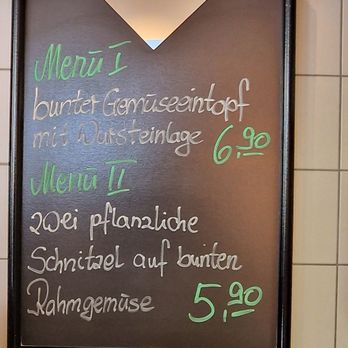 Menü I
bunter Gemüseeintopf
mit Wursteinlage 6,90
Menü II
zwei pflanzliche
Schnitzel auf bunten
Rahmgemüse 5,90